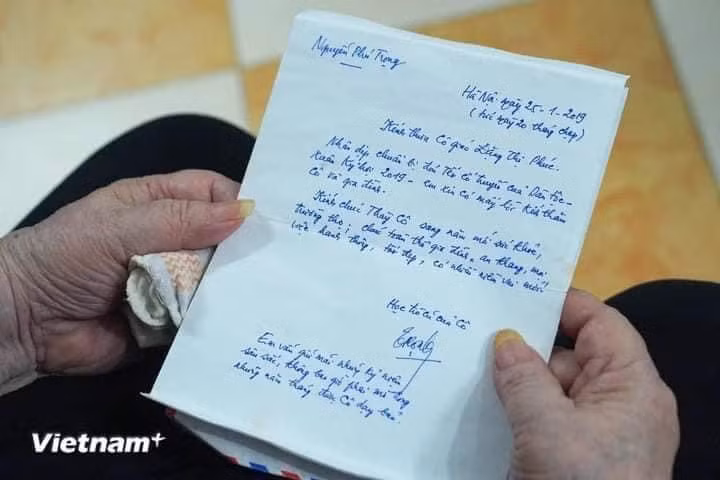 Nguyễn Phú Trọng
Hà Nội ngày 25-1-2019
(tức ngày 20 tháng chạp)
Kính thưa Cô giáo Đặng Thị Phúc.
Nhân dịp chuẩn bị đón Tết cổ truyền của Dân tộc -
Xuân Kỷ hợi 2019 - em xin có mấy lời kính thăm
Cô và gia đình.
Kính chúc Thày Cô sang năm mới sức khỏe,
trường thọ, chúc toàn thể gia đình an khang, mọi
việc hanh thông, tốt đẹp, có nhiều niềm vui mới!
Học trò cũ của Cô
Trọng
Em vẫn giữ mãi những kỷ niệm
sâu sắc, không bao giờ phai mờ trong
những năm tháng được Cô dạy bảo.
Vietnam+